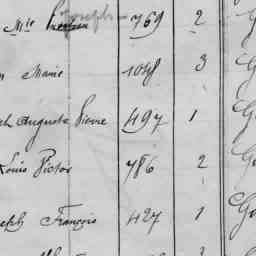 Joseph
Mle 769 2 G
Marie 1048 3 G
Auguste Pierre 497 1 G
Louis Victor 786 2 G
Joseph François 427 1 G